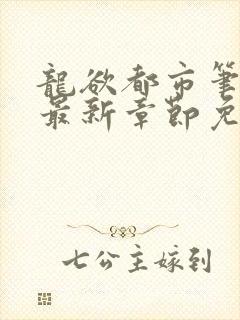 龍欲都市筆
最新章節免
七公主嫁到